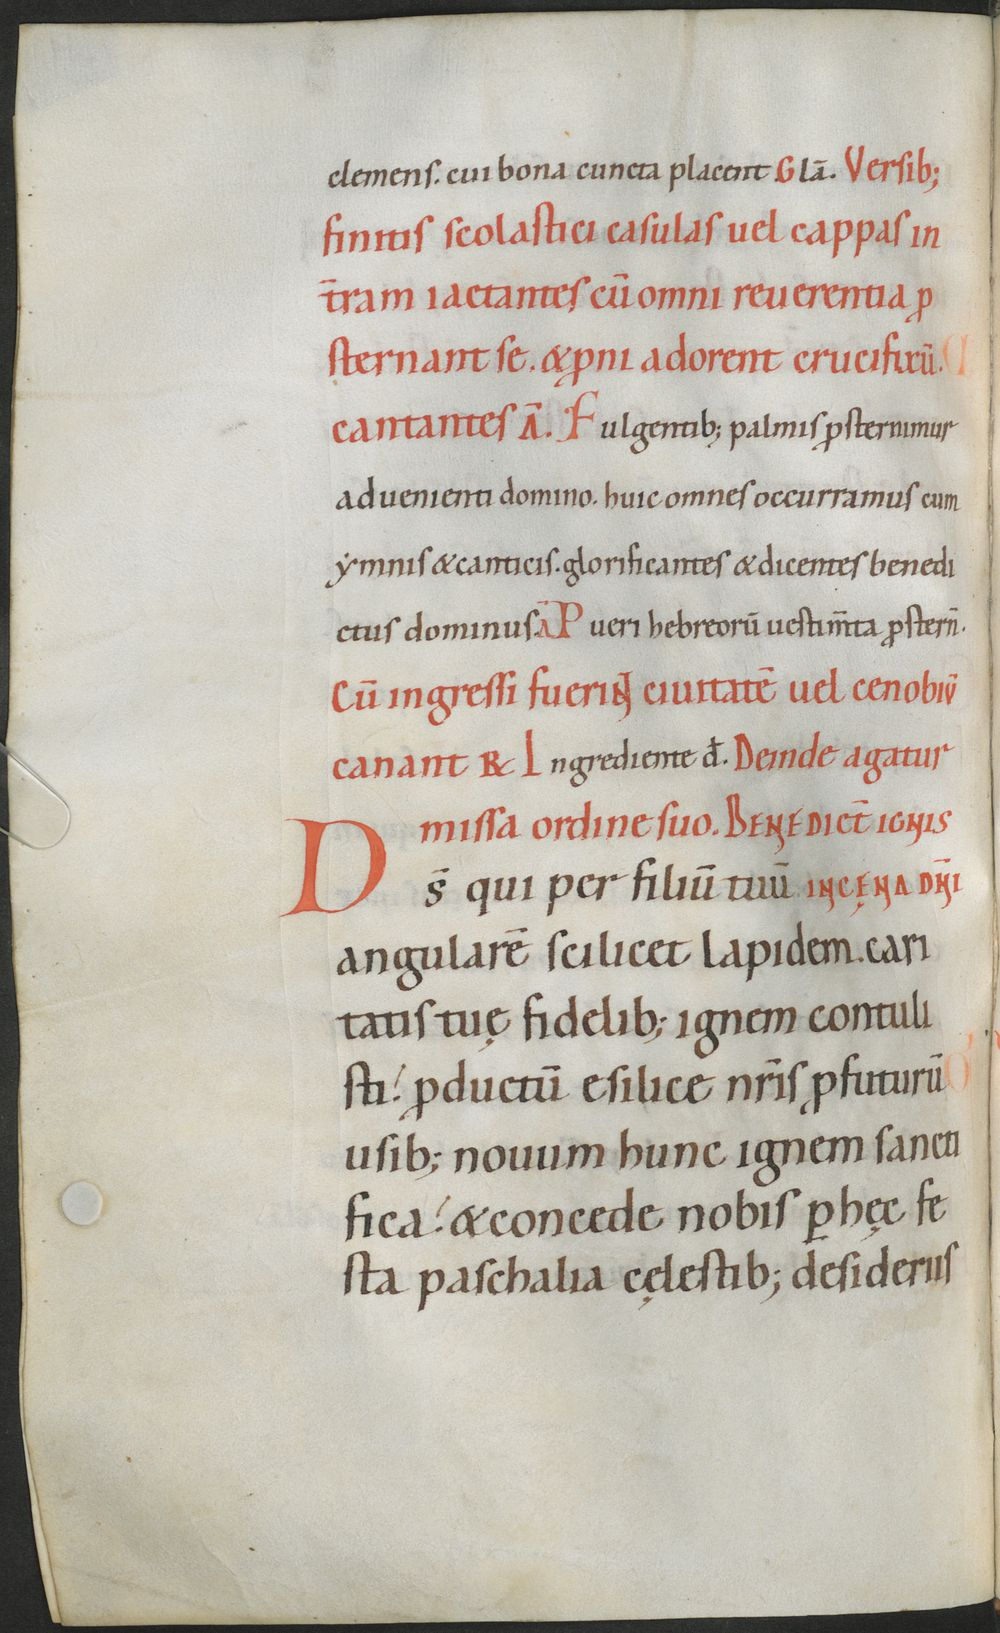 clemens. cui bona cuncta placent Glā. Versib;
finitis scolastici casulas uel cappas in
t̄ram iactantes cū omni reuerentia ꝓ
sternant se. & ꝓni adorent crucifixū.
cantantes Ā. Fulgentib; palmis ꝓsternimur
aduenienti domino. huic omnes occurramus cum
ẏmnis & canticis. glorificantes & dicentes benedi
ctus dominus. Ā Pueri hebreorū uestim̄ta ꝓstern̄.
Cū ingressi fuerint ciuitatē uel cenobiū
canant R& Ingrediente d̄. Deinde agatur
missa ordine suo. BENEDICT̄ IGNIS
Ds̄ qui per filiū tuū IN CĘNA DN̄I
angularē scilicet lapidem. cari
tatis tuę fidelib; ignem contuli
sti! ꝓductū e silice nr̄is ꝓfuturū
usib; nouum hunc ignem sancti
fica! & concede nobis ꝑ hęc fe
sta paschalia cęlestib; desideriis